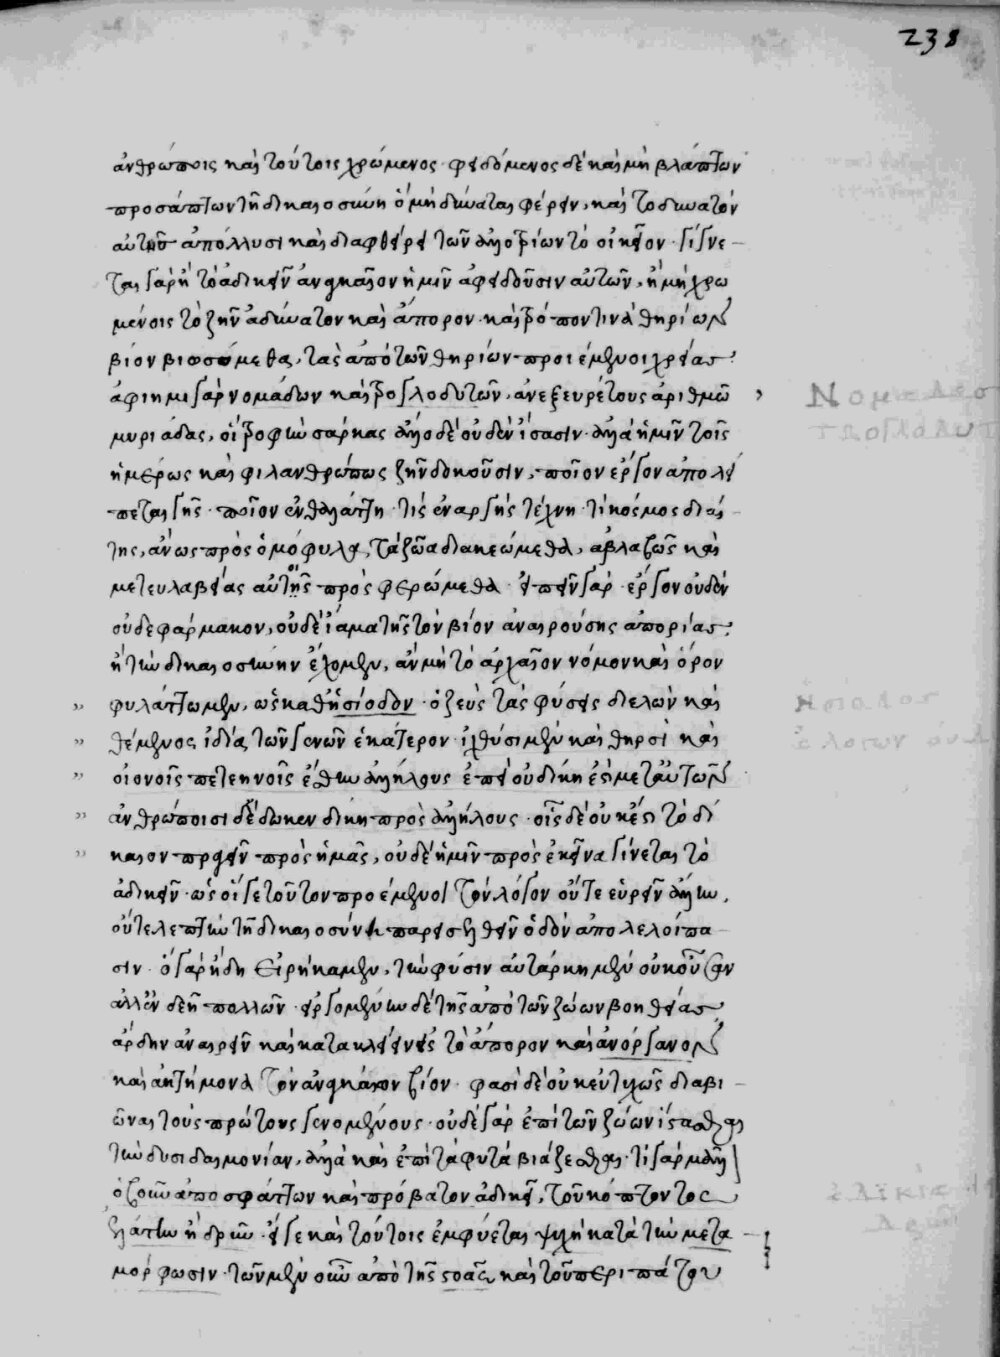 238
ἀνθρώποις καὶ τούτοις χρώμενος· φειδόμενος δὲ καὶ μὴ βλάπτων
προσάπτων τῇ δικαιοσύνη ὁ μὴ δύναται φέρειν, καὶ τὸ δυνατὸν
αὐτῆς ἀπόλλυσι καὶ διαφθείρει τῶν ἀλλοτρίων τὸ οἰκεῖον· γίγνε
ται γὰρ ἢ τὸ ἀδικεῖν ἀναγκαῖον ἡμῖν ἀφειδοῦσιν αὐτῶν, ἢ μὴ χρω
μένοις τὸ ζῆν ἀδύνατον καὶ ἄπορον· καὶ τρόπον τινὰ θηρίων
βίον βιωσόμεθα, τὰς ἀπὸ τῶν θηρίων προιέμενοι χρείας·
ἀφίημι γὰρ νομάδων καὶ τρογλοδυτῶν, ἀνεξευρέτους ἀριθμῶ
μυριάδας, οἱ τροφὴν σάρκας ἄλλο δὲ οὐδὲν ἴσασιν· ἀλλὰ ἡμῖν τοῖς
ἡμέρως καὶ φιλανθρώπως ζῆν δοκοῦσιν, ποῖον ἔργον ἀπολεί
πεται γῆς· ποῖον ἐν θαλάττη· τίς ἐναργὴς τέχνη· τί κόσμος διαί
της, ἂν ὡς πρὸς ὁμόφυλα, τὰ ζῶα διακεώμεθα, ἀβλαβῶς καὶ
μετ ευλαβείας αὐτοῖς προσφερώμεθα· εἰπεῖν γὰρ ἔργον οὐδὲν
οὐδὲ φάρμακον, οὐδὲ ἴαμα τῆς τὸν βίον ἀναιρούσης ἀπορίας,
ἢ τὴν δικαιοσύνην ἔχομεν, ἂν μὴ τὸ ἀρχαῖον νόμον καὶ ὅρον
φυλάττωμεν, ὡς καθ ἡσίοδον· ὁ ζεὺς τὰς φύσεις διελὼν καὶ
θέμενος ἰδία τῶν γενῶν ἑκάτερον· ἰχθύσι μὲν καὶ θηρσὶ καὶ
οἰωνοῖς πετεηνοῖς ἔσθειν ἀλλήλους ἐπεὶ οὐ δίκη ἐστὶ μετ αὐτῶν
ἀνθρώποισι δὲ δῶκεν δίκην πρὸς ἀλλήλους· οἷς δὲ οὐκ ἔστι τὸ δί
καιον πράττειν πρὸς ἡμᾶς, οὐδὲ ἡμῖν πρὸς ἐκεῖνα γίνεται τὸ
ἀδικεῖν· ὡς οἵ γε τοῦτον προέμενοι τὸν λόγον οὔτε εὑρεῖν ἄλλην,
οὔτε λεπτὴν τῇ δικαιοσύνη παρεισελθεῖν ὁδὸν ἀπολελοίπα
σιν· ὁ γὰρ ἤδη εἰρήκαμεν, τὴν φύσιν αὐτάρκη μὲν οὐκ οὖσαν
ἀλλ ἐν δεῆ πολλῶν· εἰργομένην δὲ τῆς ἀπὸ τῶν ζώων βοηθείας,
ἄρδην ἀναιρεῖν καὶ κατακλείειν εἰς τὸ ἄπορον καὶ ἀνόργανον
καὶ ἀκτήμονα τὸν ἀναγκαῖον βίον· φασὶ δὲ οὐκ εὐτυχῶς διαβι
ῶναι τοὺς πρώτους γενομένους· οὐδὲ γὰρ ἐπὶ τῶν ζώων ἵστασθαι
τὴν δυσιδαιμονίαν, ἀλλὰ καὶ ἐπὶ τὰ φυτὰ βιάζεσθαι· τί γὰρ μᾶλλον
ὁ βοῦν ἀποσφάττων καὶ πρόβατον ἀδικεῖ, τοῦ κόπτοντος
ἐλάτην ἢ δρῦν· εἴ γε καὶ τούτοις ἐμφύεται ψυχὴ κατὰ τὴν μετα
μόρφωσιν· τῶν μὲν οὖν ἀπὸ τῆς στοᾶς καὶ τοῦ περιπάτου